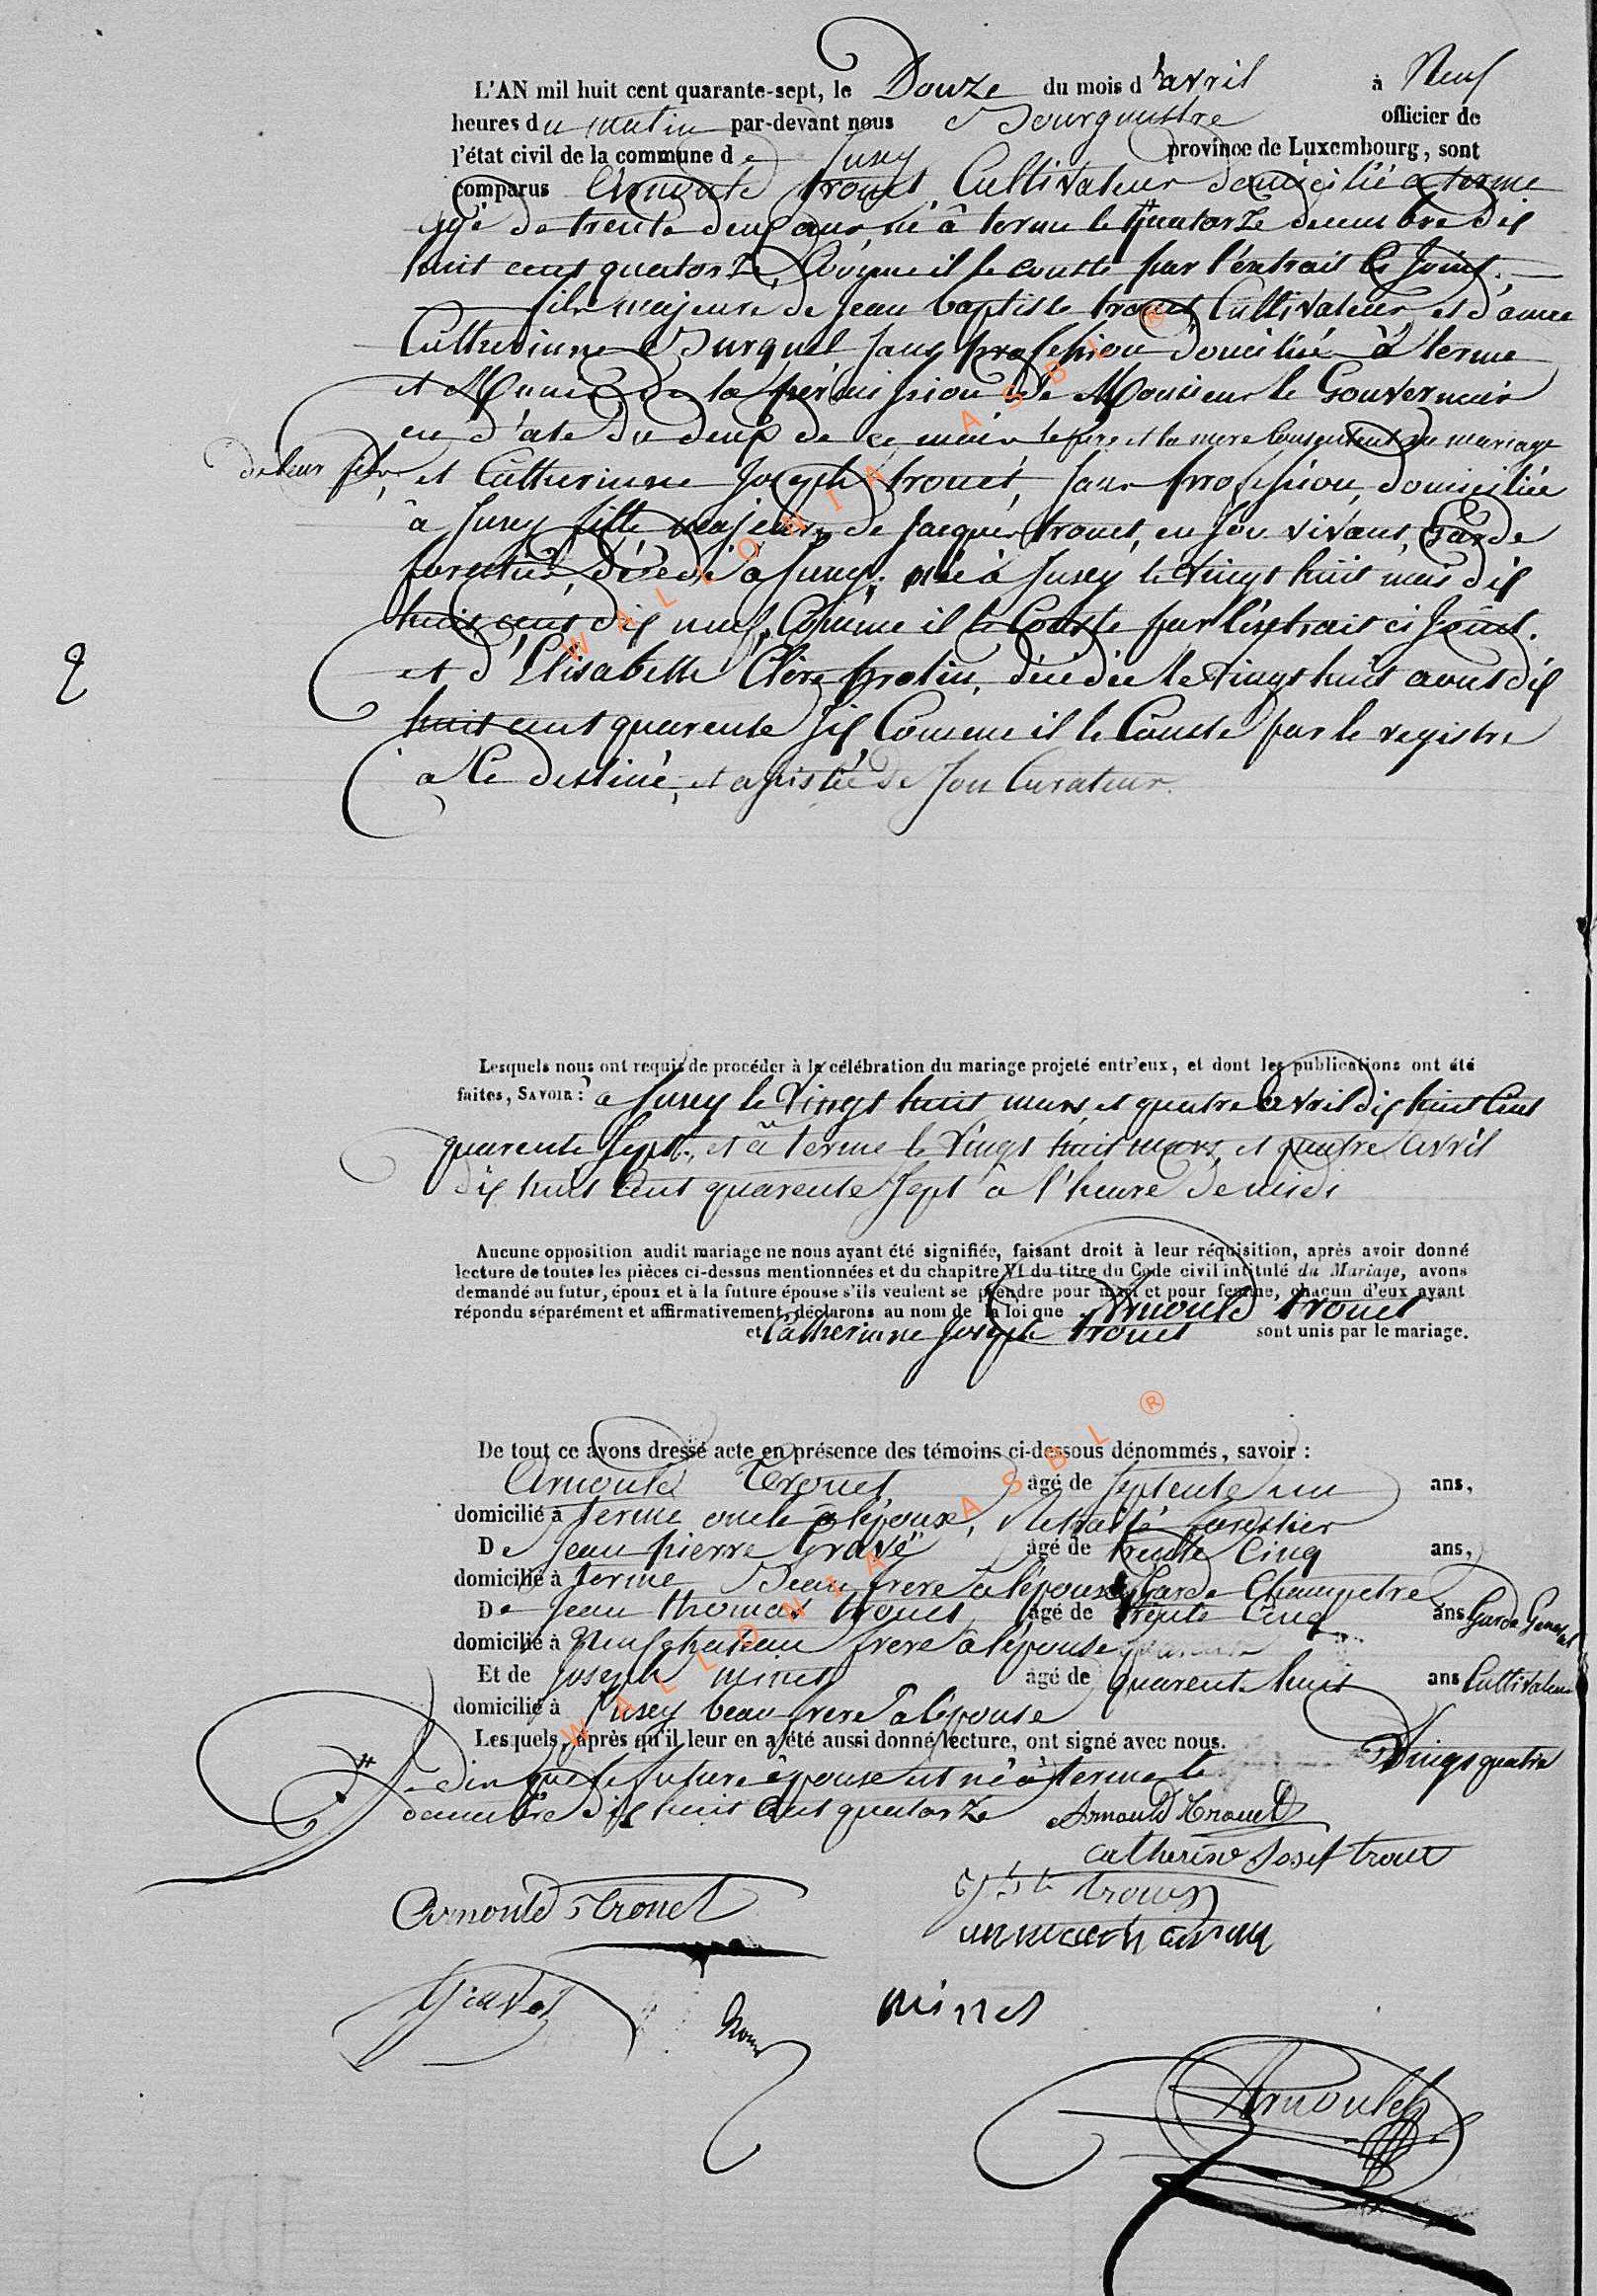 L'AN mil huit cent quarante-sept, le Douze du mois d'avril à Neuf
heures du matin par-devant nous Bourguestre officier de
l'état civil de la commune de Jusey province de Luxembourg, sont
comparus Arnould trouet, Cultivateur domicilié a terme
agé de trente deux ans, né â terme le # quatorze decembre dix
huit cent quatorze, Comme il le conste par l'extrait ci Joint.
fils majeure de Jean baptiste trouet Cultivateur et d'anne
Catherinne Burquel Sans profession domiciliée â terme
et Munie de la permission de Monsieur le Gouverneur
en d'ate du deux de ce mois le pere et la mere Consentent au mariage
de leur fils, et Catherinne Joseph trouet, Sans profession, domiciliée
â Jusey fille majeure de Jacques trouet, en Son vivant, Garde
forestier, décédé â Jusey, née â Jusey le vingt huit mais dix
huit cent dix neuf, Comme il le Conste par l'extrait ci Joint.
et d'Elisabette Clère protin, décédée le vingt huit aout dix
huit cent quarente six Comme il le Conste par le registre
a Ce destiné, et assistée de Son Curateur.
2
Lesquels nous ont requis de procéder à la célébration du mariage projeté entr'eux, et dont les publications ont été
faites, SAVOIR: a Jusey le Vingt huit mars, et quatre avril dix huit Cent
quarente Sept, et â terme le Vingt huit mars, et quatre avril
dix huit Cent quarente Sept â l'heure de midi
Aucune opposition audit mariage ne nous ayant été signifiée, faisant droit à leur réquisition, après avoir donné
lecture de toutes les pièces ci-dessus mentionnées et du chapitre VI du titre du Code civil intitulé du Mariage, avons
demandé au futur, époux et à la future épouse s'ils veulent se prendre pour mari et pour femme, chacun d'eux ayant
répondu séparément et affirmativement, déclarons au nom de la loi que Arnould trouet
et Catherinne Joseph trouet sont unis par le mariage.
De tout ce avons dressé acte en présence des témoins ci-dessous dénommés, savoir :
Arnould Trouet âgé de Septente un ans,
domicilié à terme oncle â l'époux, Retraité forestier
De Jean pierre Gravé âgé de trente Cinq ans,
domicilié à terme Beau frere â l'epoux Garde Champetre
De Jean thomas trouet âgé de trente Cinq ans Garde General
domicilié à Neufchateau frere â l'épouse
Et de Joseph minet âgé de quarente huit ans Cultivateur
domicilié à Jusey beau frere â l'épouse
Lesquels, après qu'il leur en a été aussi donné lecture, ont signé avec nous.
# Je dix que le future épouse est né â terme le Vingt quatre
decembre dix huit Cent quatorze Arnould Trouet
catherine Josef trouet
Arnould Trouet trouet
Gravé minet
Arnould
WALLONIA ASBL ®
WALLONIA ASBL ®